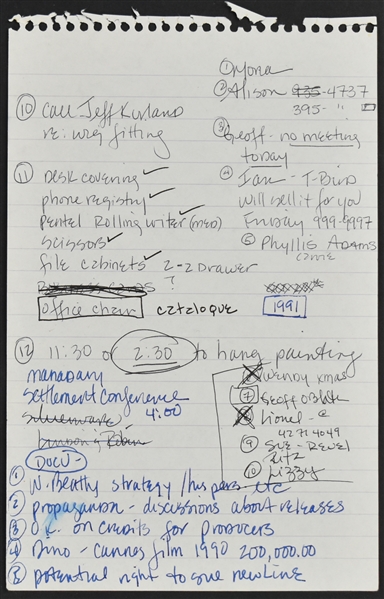 ① Mona
② Alison 935-4737
395- "
⑩ Call Jeff Kurland
re: wig fitting
③ Geoff - no meeting
today
⑪ Desk covering ✓
phone registry ✓
Pentel Rolling Writer (med) ✓
Scissors ✓
file cabinets ✓ 2-2 Drawer
?
④ Ian - T-Bird
will sell it for you
Friday 999-9997
⑤ Phyllis Adams
Office Chair catalogue
1991
⑫ 11:30 or 2:30 to hang painting
mandatory
settlement conference
4:00
Silverware
Wendy xmas
⑦ Geoff
Lionel - @
4271 4049
⑨ Sue - Revel
Ritz
⑩ Lizzy
DOCU -
① W. Beatty strategy / his pers etc
② propaganda - discussions about releases
③ O.K. on credits for producers
④ Dino - Cannes film 1990 200,000.00
⑤ potential right to sue newline